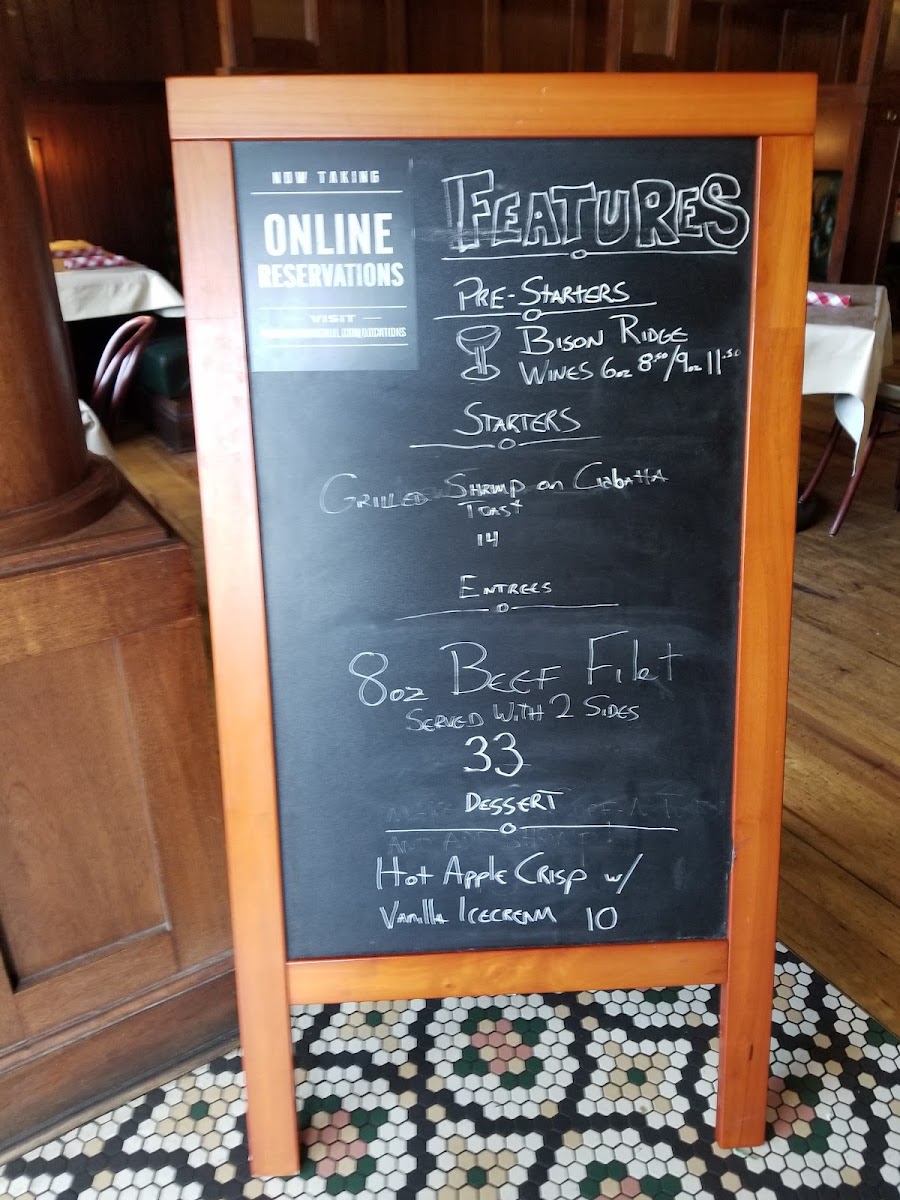 NOW TAKING
ONLINE
RESERVATIONS
VISIT
FEATURES
PRE-STARTERS
BISON RIDGE
WINES 6oz 8.50/9oz 11.50
STARTERS
GRILLED SHRIMP on Ciabatta
TOAST
14
ENTREES
8oz BEEF Filet
SERVED WITH 2 SIDES
33
DESSERT
Hot Apple CRISP w/
Vanilla ICECREAM 10